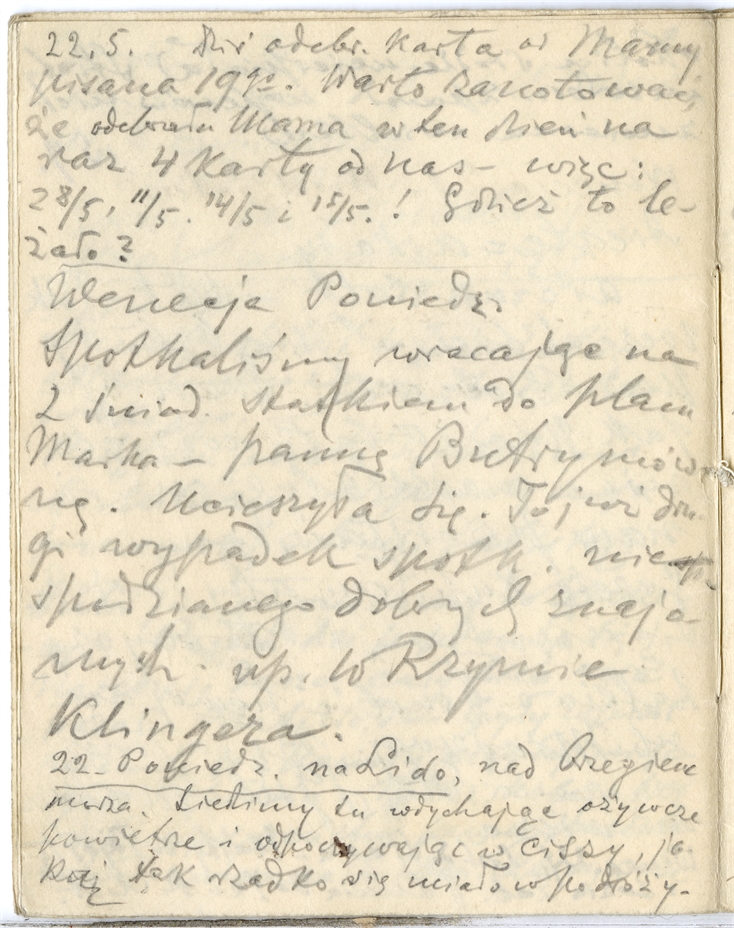 22.5. Dziś odebr. karta od Mamy
pisana 19go. Warto zanotować,
że odebrała Mama w ten dzień na
raz 4 karty od nas – więc:
28/5, 11/5. 14/5 i 15/5.! Gdzież to le-
żało?
Wenecja Poniedz.
Spotkaliśmy wracając na
2 śniad. statkiem do placu
Marka – pannę Butrymów-
nę. Ucieszyła się. To już dru-
gi wypadek spotk. nie
spodzianego dobrych znajo-
mych. np. w Rzymie
Klingera.
22. Poniedz. na Lido, nad brzegiem
morza. Siedzimy tu wdychając ożywcze
powietrze i odpoczywając w ciszy, ja-
kiej tak rzadko się miało w podróży.